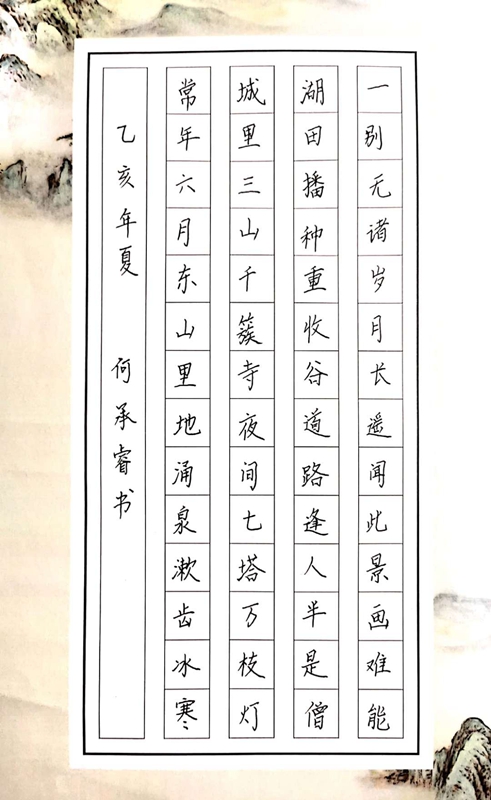 一别无诸岁月长遥闻此景画难能
湖田播种重收谷道路逢人半是僧
城里三山千簇寺夜间七塔万枝灯
常年六月东山里地涌泉漱齿冰寒
乙亥年夏 何承睿书